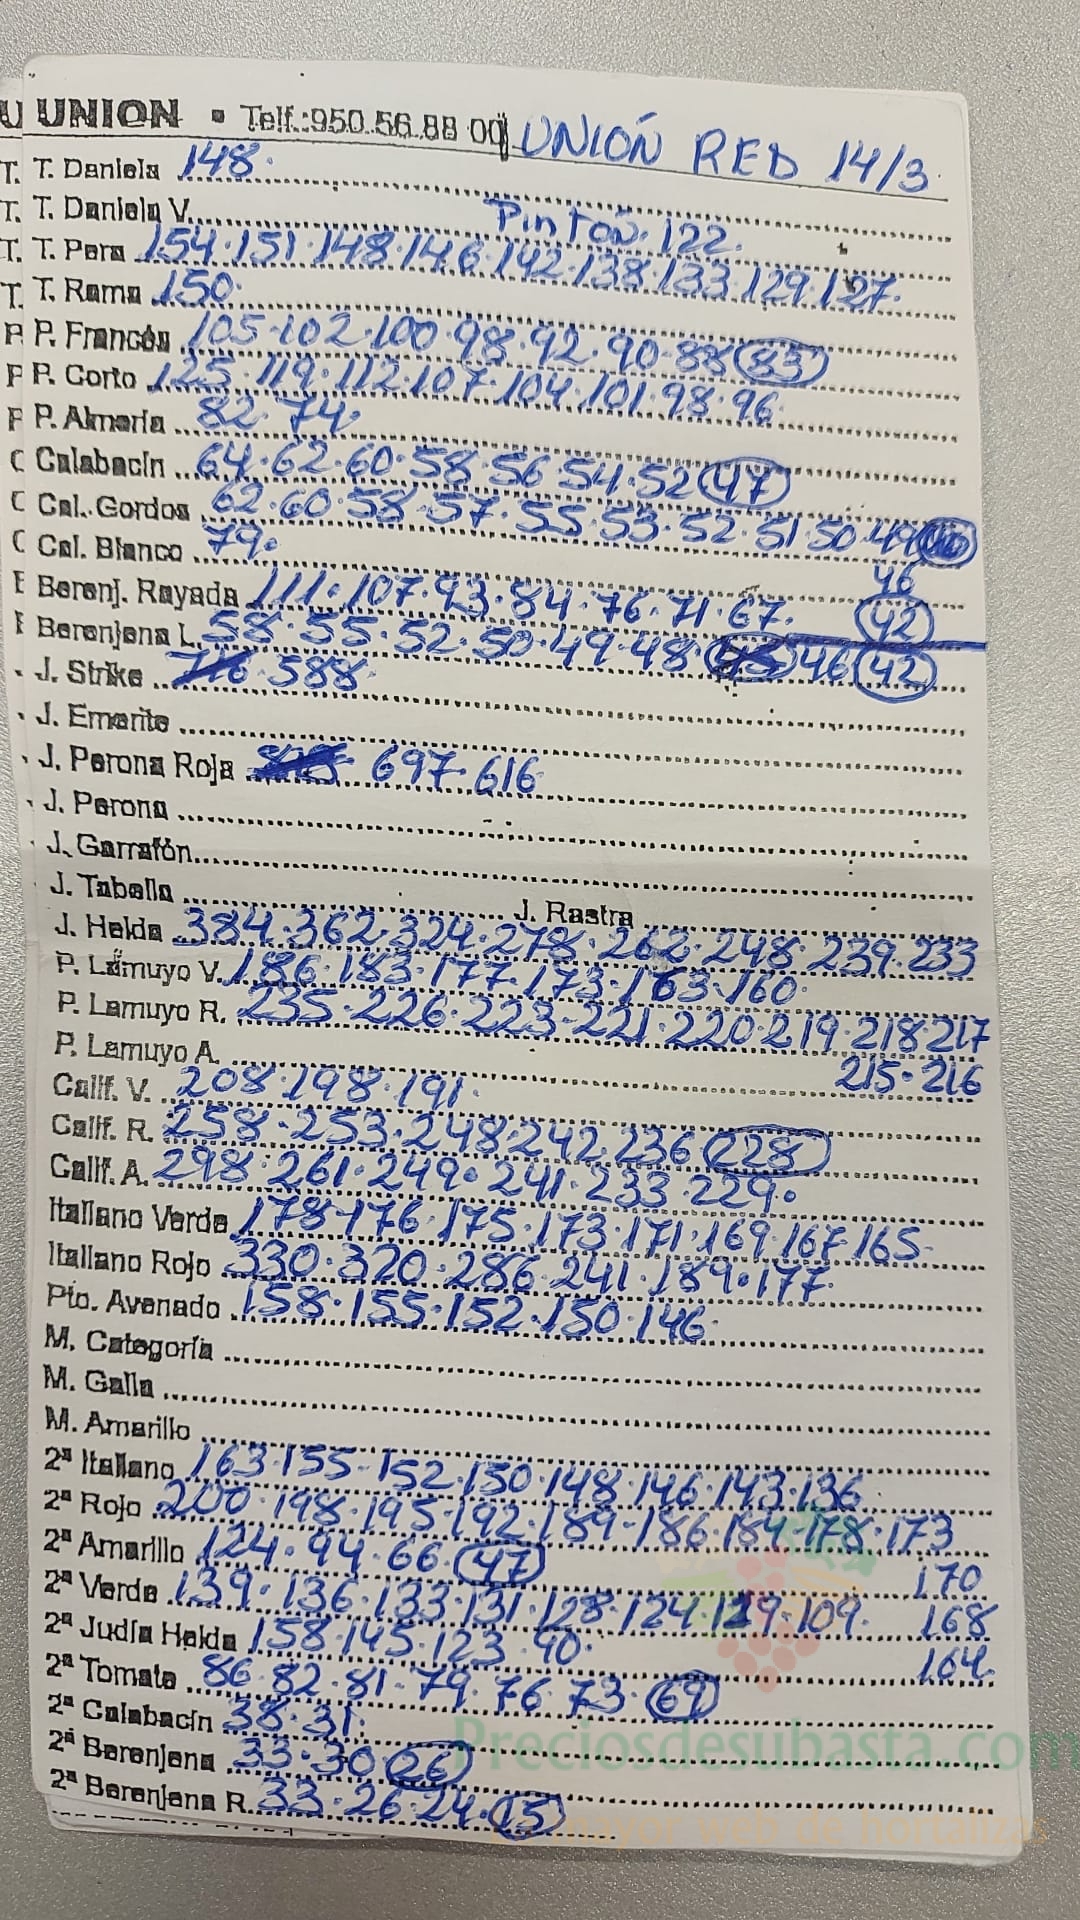 UNION • Telf.:950.56.88 00 UNIÓN RED 14/3
T. Daniela 148.
T. Daniela V. Pinton. 122.
T. Pera 154.151.148.146.142.138.133.129.127.
T. Rama 150.
P. Francés 105.102.100.98.92.90.88 83
P. Corto 125.119.112.107.104.101.98.96.
P. Almería 82.74.
Calabacín 64.62.60.58.56.54.52 47
Cal. Gordos 62.60.58.57.55.53.52.51.50.49
46
Cal. Blanco 79.
42
Berenj. Rayada 111.107.93.84.76.71.67.
Berenjena L. 58.55.52.50.49.48 46 42
J. Strike 588.
J. Emerite
J. Perona Roja 697.616.
J. Perona
J. Garrafón
J. Tabella J. Rastra
J. Helda 384.362.324.278.262.248.239.233
P. Lamuyo V. 186.183.177.173.163.160.
P. Lamuyo R. 235.226.223-221.220.219.218 217
215.216
P. Lamuyo A.
Calif. V. 208.198.191.
Calif. R. 258.253.248.242.236 228
Calif. A. 298.261.249.241.233.229.
Italiano Verde 178-176.175.173.171.169.167 165.
Italiano Rojo 330.320.286.241.189.177.
Pto. Avenado 158.155.152.150.146.
M. Categoría
M. Galia
M. Amarillo
2ª Italiano 163.155-152.150.148.146.143.136
2ª Rojo 200.198.195.192.189-186.184-178.173
170
168
164.
2ª Amarillo 124.94.66. 47
2ª Verde 139.136.133.131.128.124.119.109.
2ª Judía Helda 158.145.123.90.
2ª Tomate 86.82.81.79.76.73. 69
2ª Calabacín 38.31.
2ª Berenjena 33.30 26
2ª Berenjena R. 33.26.24. 15
Preciosdesubasta.com
mayor web de hortalizas